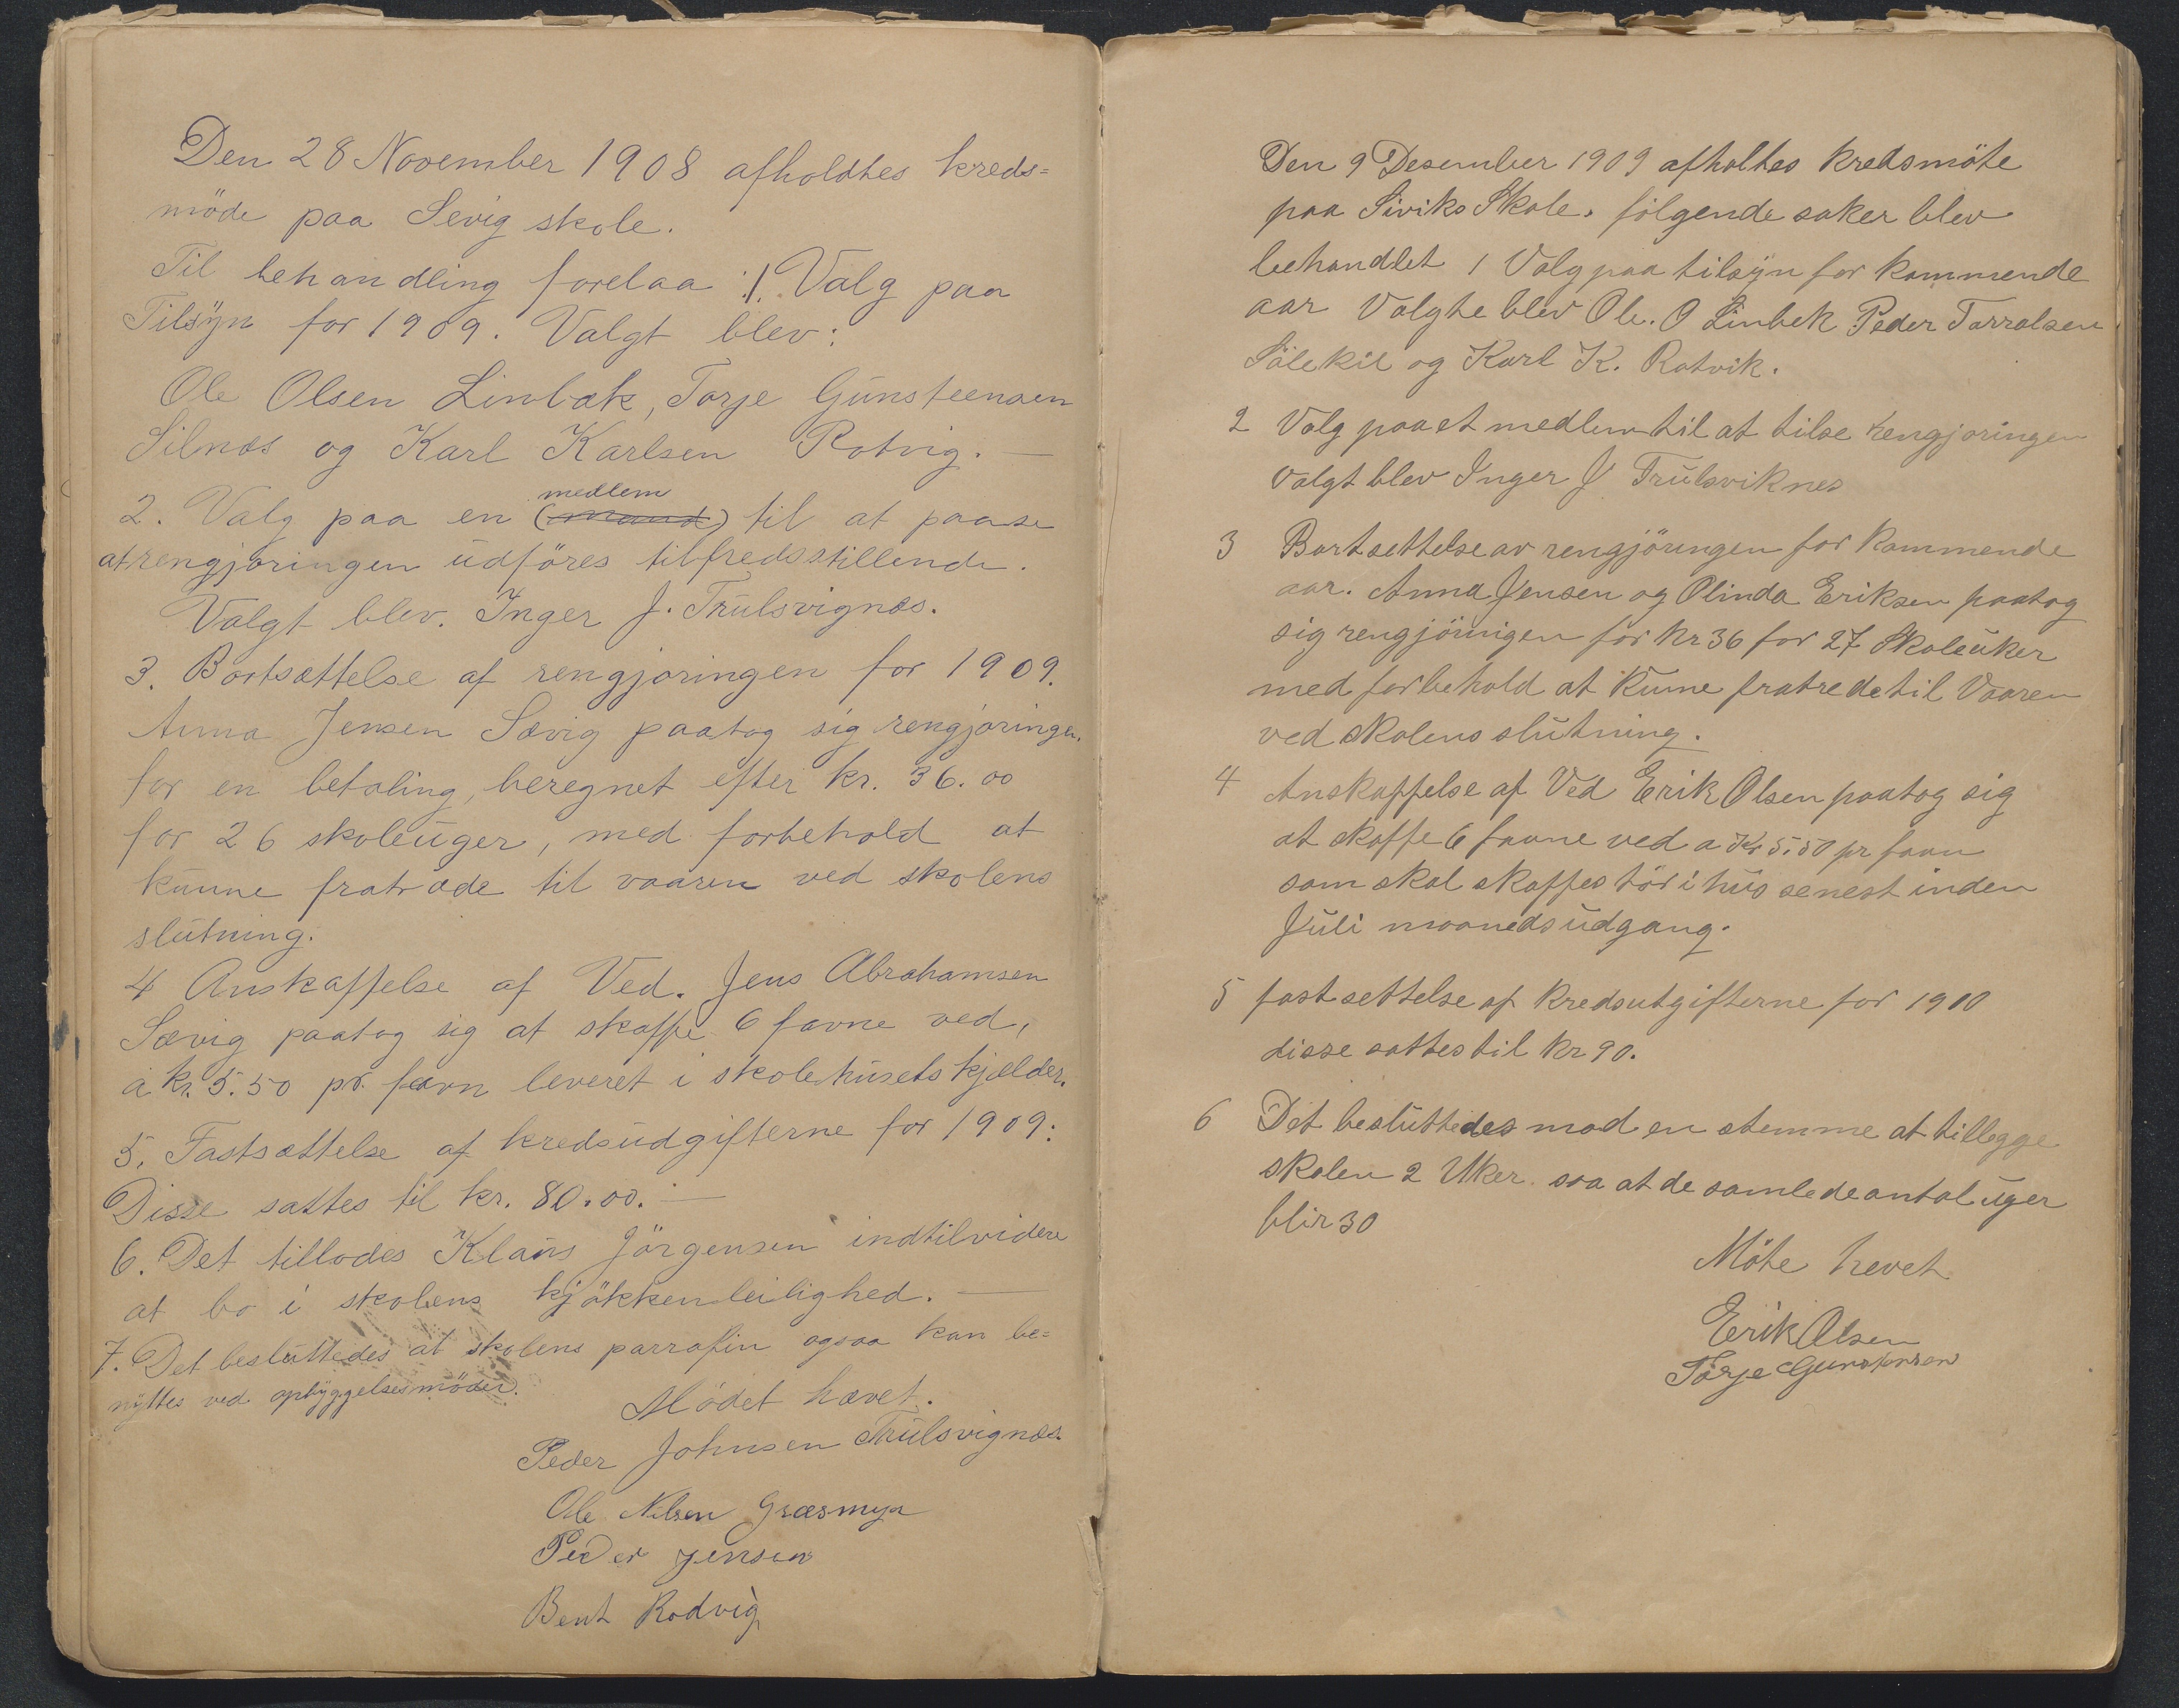 Den 28 November 1908 afholdtes kreds=
möde paa Sevig skole.
Til behandling forelaa: 1. Valg paa
Tilsÿn for 1909. Valgt blev:
Ole Olsen Linbæk, Torje Gunsteensen
Silnæs og Karl Karlsen Rotvig. —
medlem
2. Valg paa en (mand) til at paase
at rengjøringen udföres tilfredsstillende.
Valgt blev. Inger J. Trulsvignæs.
3. Bortsættelse af rengjøringen for 1909.
Anna Jensen Sævig paatog sig rengjøringen,
for en betaling, beregnet efter kr. 36.00
for 26 skoleuger, med forbehold at
kunne fratræde til vaaren ved skolens
slutning.
4 Anskaffelse af Ved. Jens Abrahamsen
Sævig paatog sig at skaffe 6 favne ved,
a kr. 5.50 pr. favn leveret i skolehusets kjælder.
5. Fastsættelse af kredsudgifterne for 1909:
Disse sattes til kr. 80.00. —
6. Det tillodes Klaus Jörgensen indtilvidere
at bo i skolens kjökkenleilighed. —
7. Det besluttedes at skolens parrafin ogsaa kan be=
nÿttes ved opbÿggelsesmöder.
Mödet hævet.
Peder Johnsen Trulsvignæs.
Ole Nilsen Græsmyr
Peder Jensen
Bent Rodvig
Den 9 Desember 1909 afholtes kredsmöte
paa Siviks Skole. fölgende saker blev
behandlet 1 Valg paa tilsÿn for kommende
aar Valgte blev Ole. O Linbek Peder Tarralsen
Sölekil og Karl K. Rotvik.
2 Valg paa et medlem til at tilse rengjøringen
Valgt blev Inger J Trulsviknes
3 Bortsettelse av rengjöringen for kommende
aar. Anna Jensen og Olinda Eriksen paatog
sig rengjöringen for kr 36 for 27 skoleuker
med forbehold at kunne fratrede til Vaaren
ved skolens slutning.
4 Anskaffelse af Ved Erik Olsen paatog sig
at skaffe 6 favne ved a Kr 5.50 pr favn
som skal skaffes tör i hus senest inden
Juli maaneds udgang.
5 fastsettelse af kredsutgifterne for 1910
disse sattes til kr 90.
6 Det besluttedes mod en stemme at tillegge
skolen 2 Uker. saa at de samlede antal uger
blir 30
Möte hevet
Erik Olsen
Torje Gunstensen